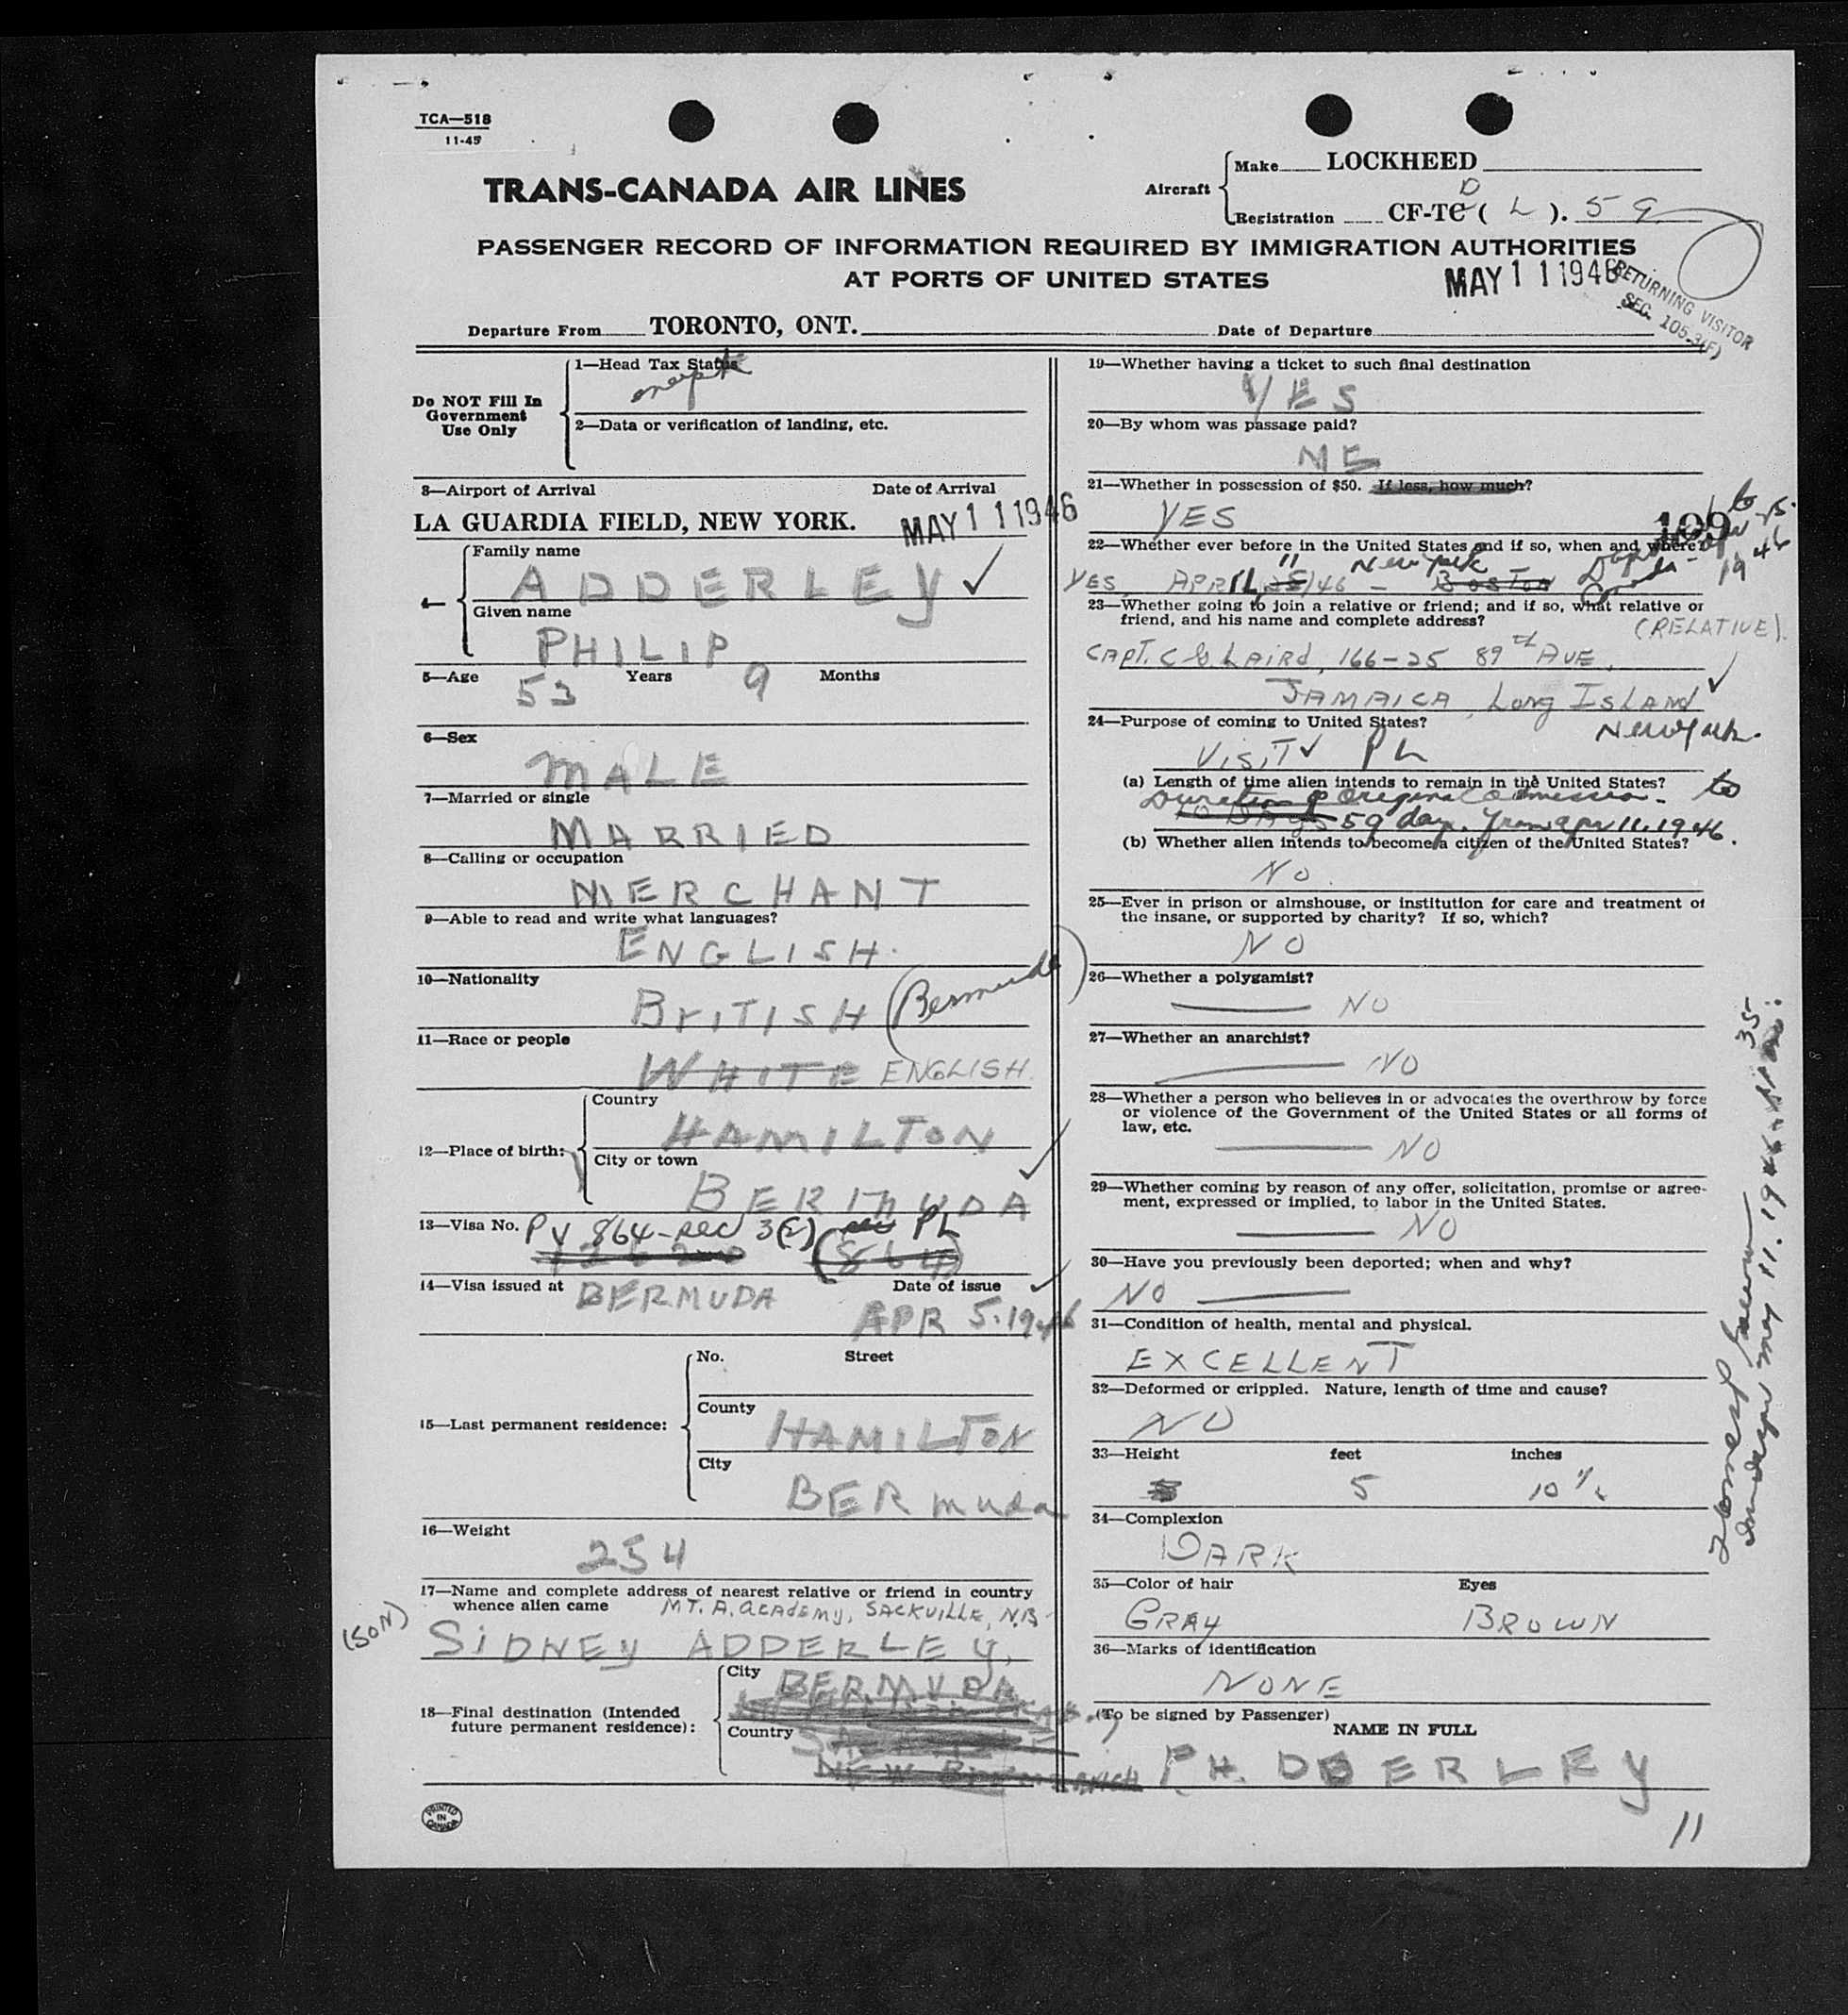 TCA—518
11-45
TRANS-CANADA AIR LINES
Aircraft
Make LOCKHEED
Registration CF-TC D ( L ). 59
PASSENGER RECORD OF INFORMATION REQUIRED BY IMMIGRATION AUTHORITIES
AT PORTS OF UNITED STATES
MAY 11 1946
RETURNING VISITOR
SEC. 105.3(F)
Departure From TORONTO, ONT. Date of Departure
Do NOT Fill In
Government
Use Only
1—Head Tax Status
2—Data or verification of landing, etc.
3—Airport of Arrival Date of Arrival
LA GUARDIA FIELD, NEW YORK. MAY 11 1946
4—
Family name
ADDERLEY ✓
Given name
PHILIP
5—Age 53 Years 9 Months
6—Sex
MALE
7—Married or single
MARRIED
8—Calling or occupation
MERCHANT
9—Able to read and write what languages?
ENGLISH.
10—Nationality
BrITISH (Bermuda)
11—Race or people
WHITE ENGLISH.
12—Place of birth:
Country
HAMILTON
City or town
BERMUDA
13—Visa No. PV 864-sec 3(2) PL
(864)
14—Visa issued at BERMUDA Date of issue
APR 5. 1946
15—Last permanent residence:
No. Street
County
HAMILTON
City
BERmuda
16—Weight
254
17—Name and complete address of nearest relative or friend in country
whence alien came MT. A. ACADEMY, SACKVILLE, N.B
(SON) SiDNEY ADDERLEY,
18—Final destination (Intended
future permanent residence):
City
BERMUDA
Country
NEW BRUNSWICK
PRINTED
IN
CANADA
19—Whether having a ticket to such final destination
YES
20—By whom was passage paid?
ME
21—Whether in possession of $50. If less, how much?
YES
109
22—Whether ever before in the United States and if so, when and where?
YES APRIL 11/46 – New York BOSTON
23—Whether going to join a relative or friend; and if so, what relative or
friend, and his name and complete address?
(RELATIVE).
CAPT. C G LAIRd, 166-25 89th AVE,
JAMAICA, Long ISLAND ✓
New York.
24—Purpose of coming to United States?
VISIT ✓ PL
(a) Length of time alien intends to remain in the United States?
Duration of Original admission - to
10 DAYS 59 days. from apr 11. 1946.
(b) Whether alien intends to become a citizen of the United States?
No.
25—Ever in prison or almshouse, or institution for care and treatment of
the insane, or supported by charity? If so, which?
NO
26—Whether a polygamist?
NO
27—Whether an anarchist?
NO
28—Whether a person who believes in or advocates the overthrow by force
or violence of the Government of the United States or all forms of
law, etc.
NO
29—Whether coming by reason of any offer, solicitation, promise or agree-
ment, expressed or implied, to labor in the United States.
NO
30—Have you previously been deported; when and why?
NO
31—Condition of health, mental and physical.
EXCELLENT
32—Deformed or crippled. Nature, length of time and cause?
NO
33—Height feet inches
5 10 ½
34—Complexion
DARK
35—Color of hair Eyes
GRAY BROWN
36—Marks of identification
NONE
(To be signed by Passenger)
NAME IN FULL
PH. DDERLEY
11